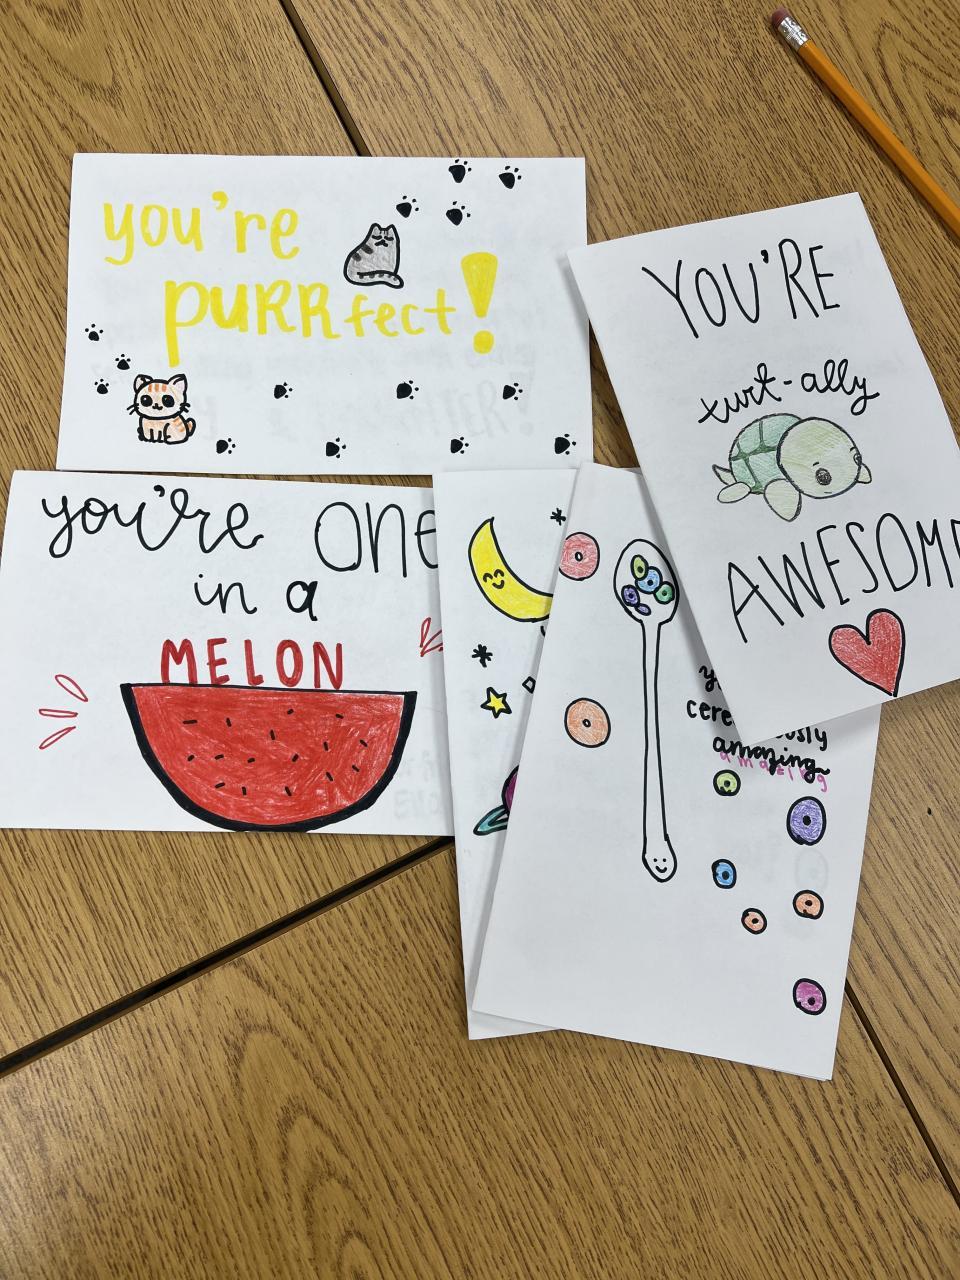 you're
PURRfect!
YOU'RE
turt-ally
AWESOME
you're one
in a
MELON
amazing
amazing